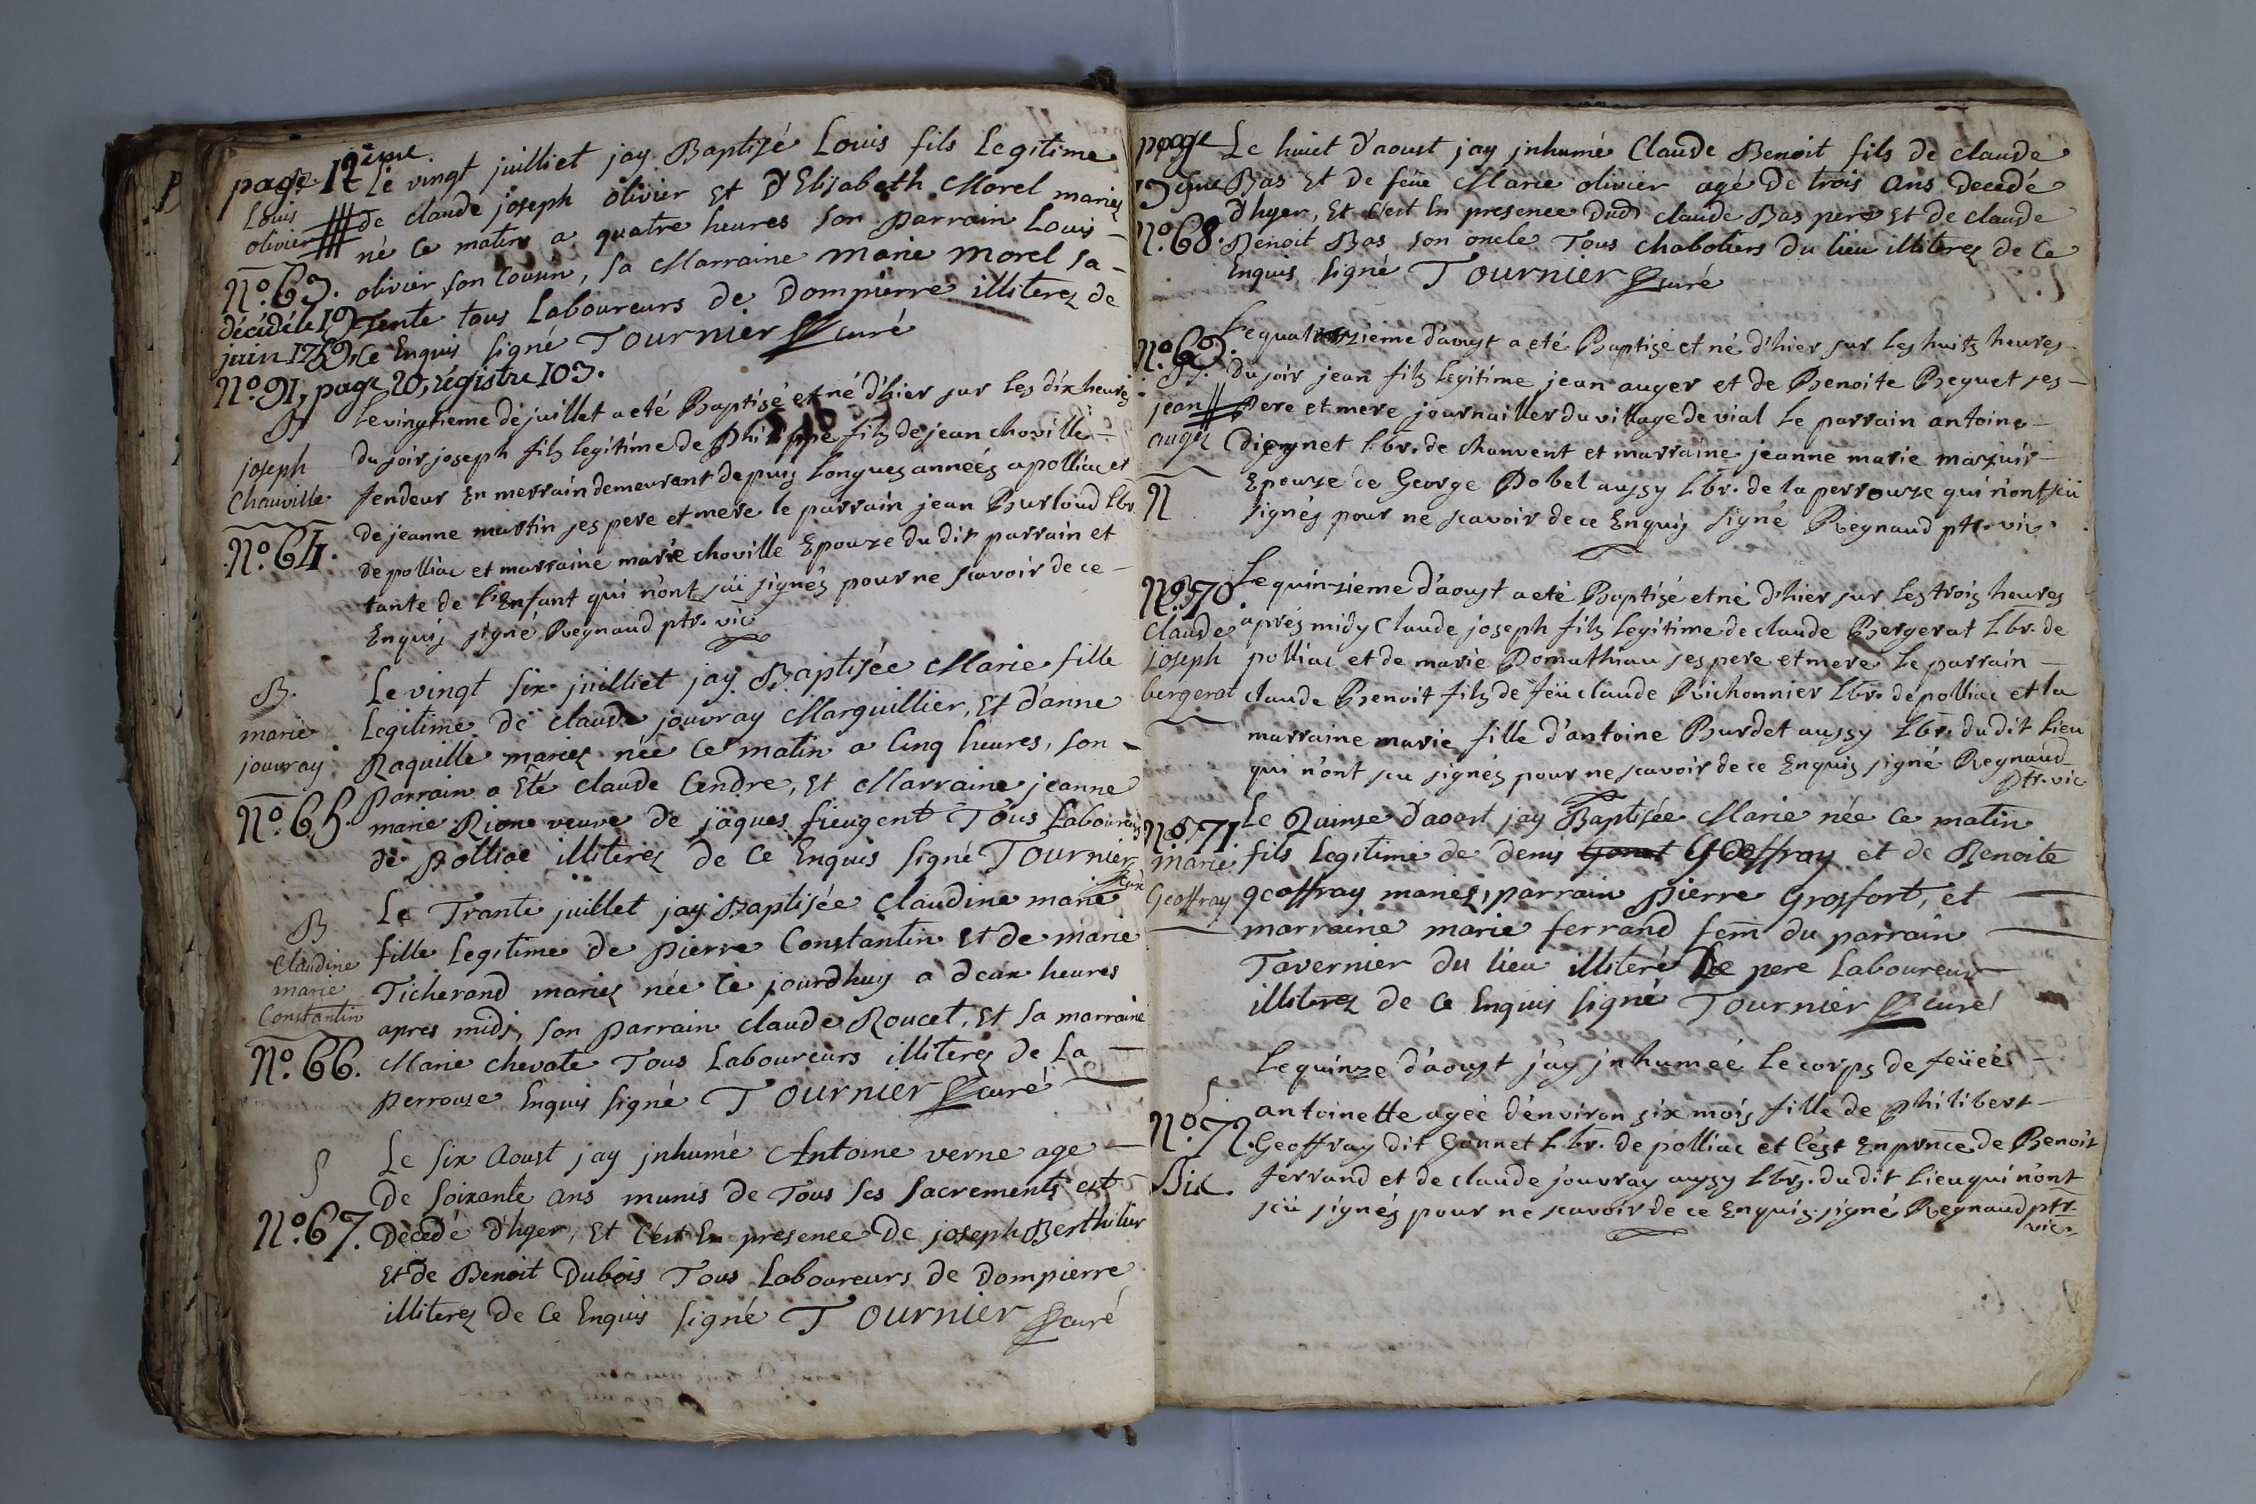 page 12ème.
Le vingt juilliet jay Baptisé Louis fils Legitime
Louis
olivier
de claude joseph olivier Et D'Elisabeth Morel mariez
né Ce matin a quatre heures son parrain Louis
No. 63.
olivier son Cousin, sa Marraine marie morel sa
décédé le 19
Tente tous Laboureurs de Dompierre illiterez de
juin 1759.
Ce Enquis signé Tournier curé
No. 91, page 20, régistre 103.
B
Le vingtieme de juillet a eté Baptisé et né d'hier sur les dix heures
joseph
Chauville
du soir joseph fils legitime de Philippe fils de jean choville
fendeur En merrain demeurant depuis longues années a polliac et
No. 64.
de jeanne martin ses pere et mere le parrain jean Burloud Lbr.
de polliac et marraine marie choville Epouze du dit parrain et
tante de l'Enfant qui n'ont sçü signés pour ne scavoir de ce
Enquis signé Regnaud ptr. vic
B.
Le vingt six juilliet jay Baptisée Marie fille
marie
jouvray
Legitime de claude jouvray Marguillier, Et d'anne
Raquille mariez née Ce matin a Cinq heures, son
No. 65.
Parrain a Eté Claude Cendre, Et Marraine jeanne
marie Rione veuve de jaques fieugent Tous Laboureurs
de polliac illiterez de Ce Enquis signé Tournier
curé
B
Le Trante juillet jay Baptisée Claudine marie
Claudine
marie
Constantin
fille Legitime de pierre Constantin Et de marie
Ticherand mariez née Ce jourdhuy a deux heures
apres midi, son parrain Claude Roucet, Et sa marraine
No. 66.
Marie chevate Tous Laboureurs illiterez de La
perrouze Enquis signé Tournier curé
S
Le six Aoust jay jnhumé Antoine verne age
De soixante Ans munis de Tous ses sacrements est
No. 67.
Decedé d'hyer, Et C'est En presence De joseph Berthilier
Et de Benoit Dubois Tous Laboureurs de Dompierre
illiterez De Ce Enquis signé Tournier curé
page
13ème
Le huict D'aoust jay jnhumé Claude Benoit fils de claude
Bas Et De feüe Marie olivier agé De trois Ans Decedé
No. 68.
d'hyer, Et C'est En presence Dud claude Bas pere Et de claude
Benoit Bas son oncle Tous chabotiers Du lieu illiterez de Ce
Enquis signé Tournier curé
No. 69.
Le quatorzieme d'aoust a eté Baptisé et né d'hier sur les huits heures
jean
auger
du soir jean fils legitime jean auger et de Benoite Beguet ses
Pere et mere journailler du village de vial Le parrain antoine
digognet Lbr. de chanvent et marraine jeanne marie mazuir
Epouze de George Dobel aussy Lbr. de la perrouze qui n'ont sçü
signés pour ne scavoir de ce Enquis signé Regnaud ptr. vic.
No. 70.
Le quinzieme d'aoust a eté Baptisé et né d'hier sur Les trois heures
Claude
joseph
bergerat
aprés midy Claude joseph fils legitime de claude Bergerat Lbr. de
polliac et de marie Domathiau ses pere et mere Le parrain
claude Benoit fils de feü claude Richonnier Lbr. de polliac et la
marraine marie fille d'antoine Burdet aussy Lbr. du dit Lieu
qui n'ont scu signés pour ne scavoir de ce Enquis signé Regnaud
ptr. vic
No. 71.
Le Quinse d'aoost jay Baptisée Marie née Ce matin
marie
Geoffray
fils Legitime de denis Geoffray et de Benoite
geoffray mariez, parrain pierre Grosfort, et
marraine marie ferrand fem du parrain
Tavernier du lieu illiteré Le pere Laboureur
illiterez de Ce Enquis signé Tournier curé
S
Le quinze d'aoust j'ay jnhumeé Le corps de feüeé
No. 72.
antoinette ageé d'environ six mois fille de Philibert
Geoffray dit Gonnet Lbr. de polliac et C'est En prnce de Benoit
Six.
ferrand et de claude jouvray aussy Lbrs. du dit Lieu qui n'ont
sçü signés pour ne scavoir de ce Enquis signé Regnaud ptr.
vic.